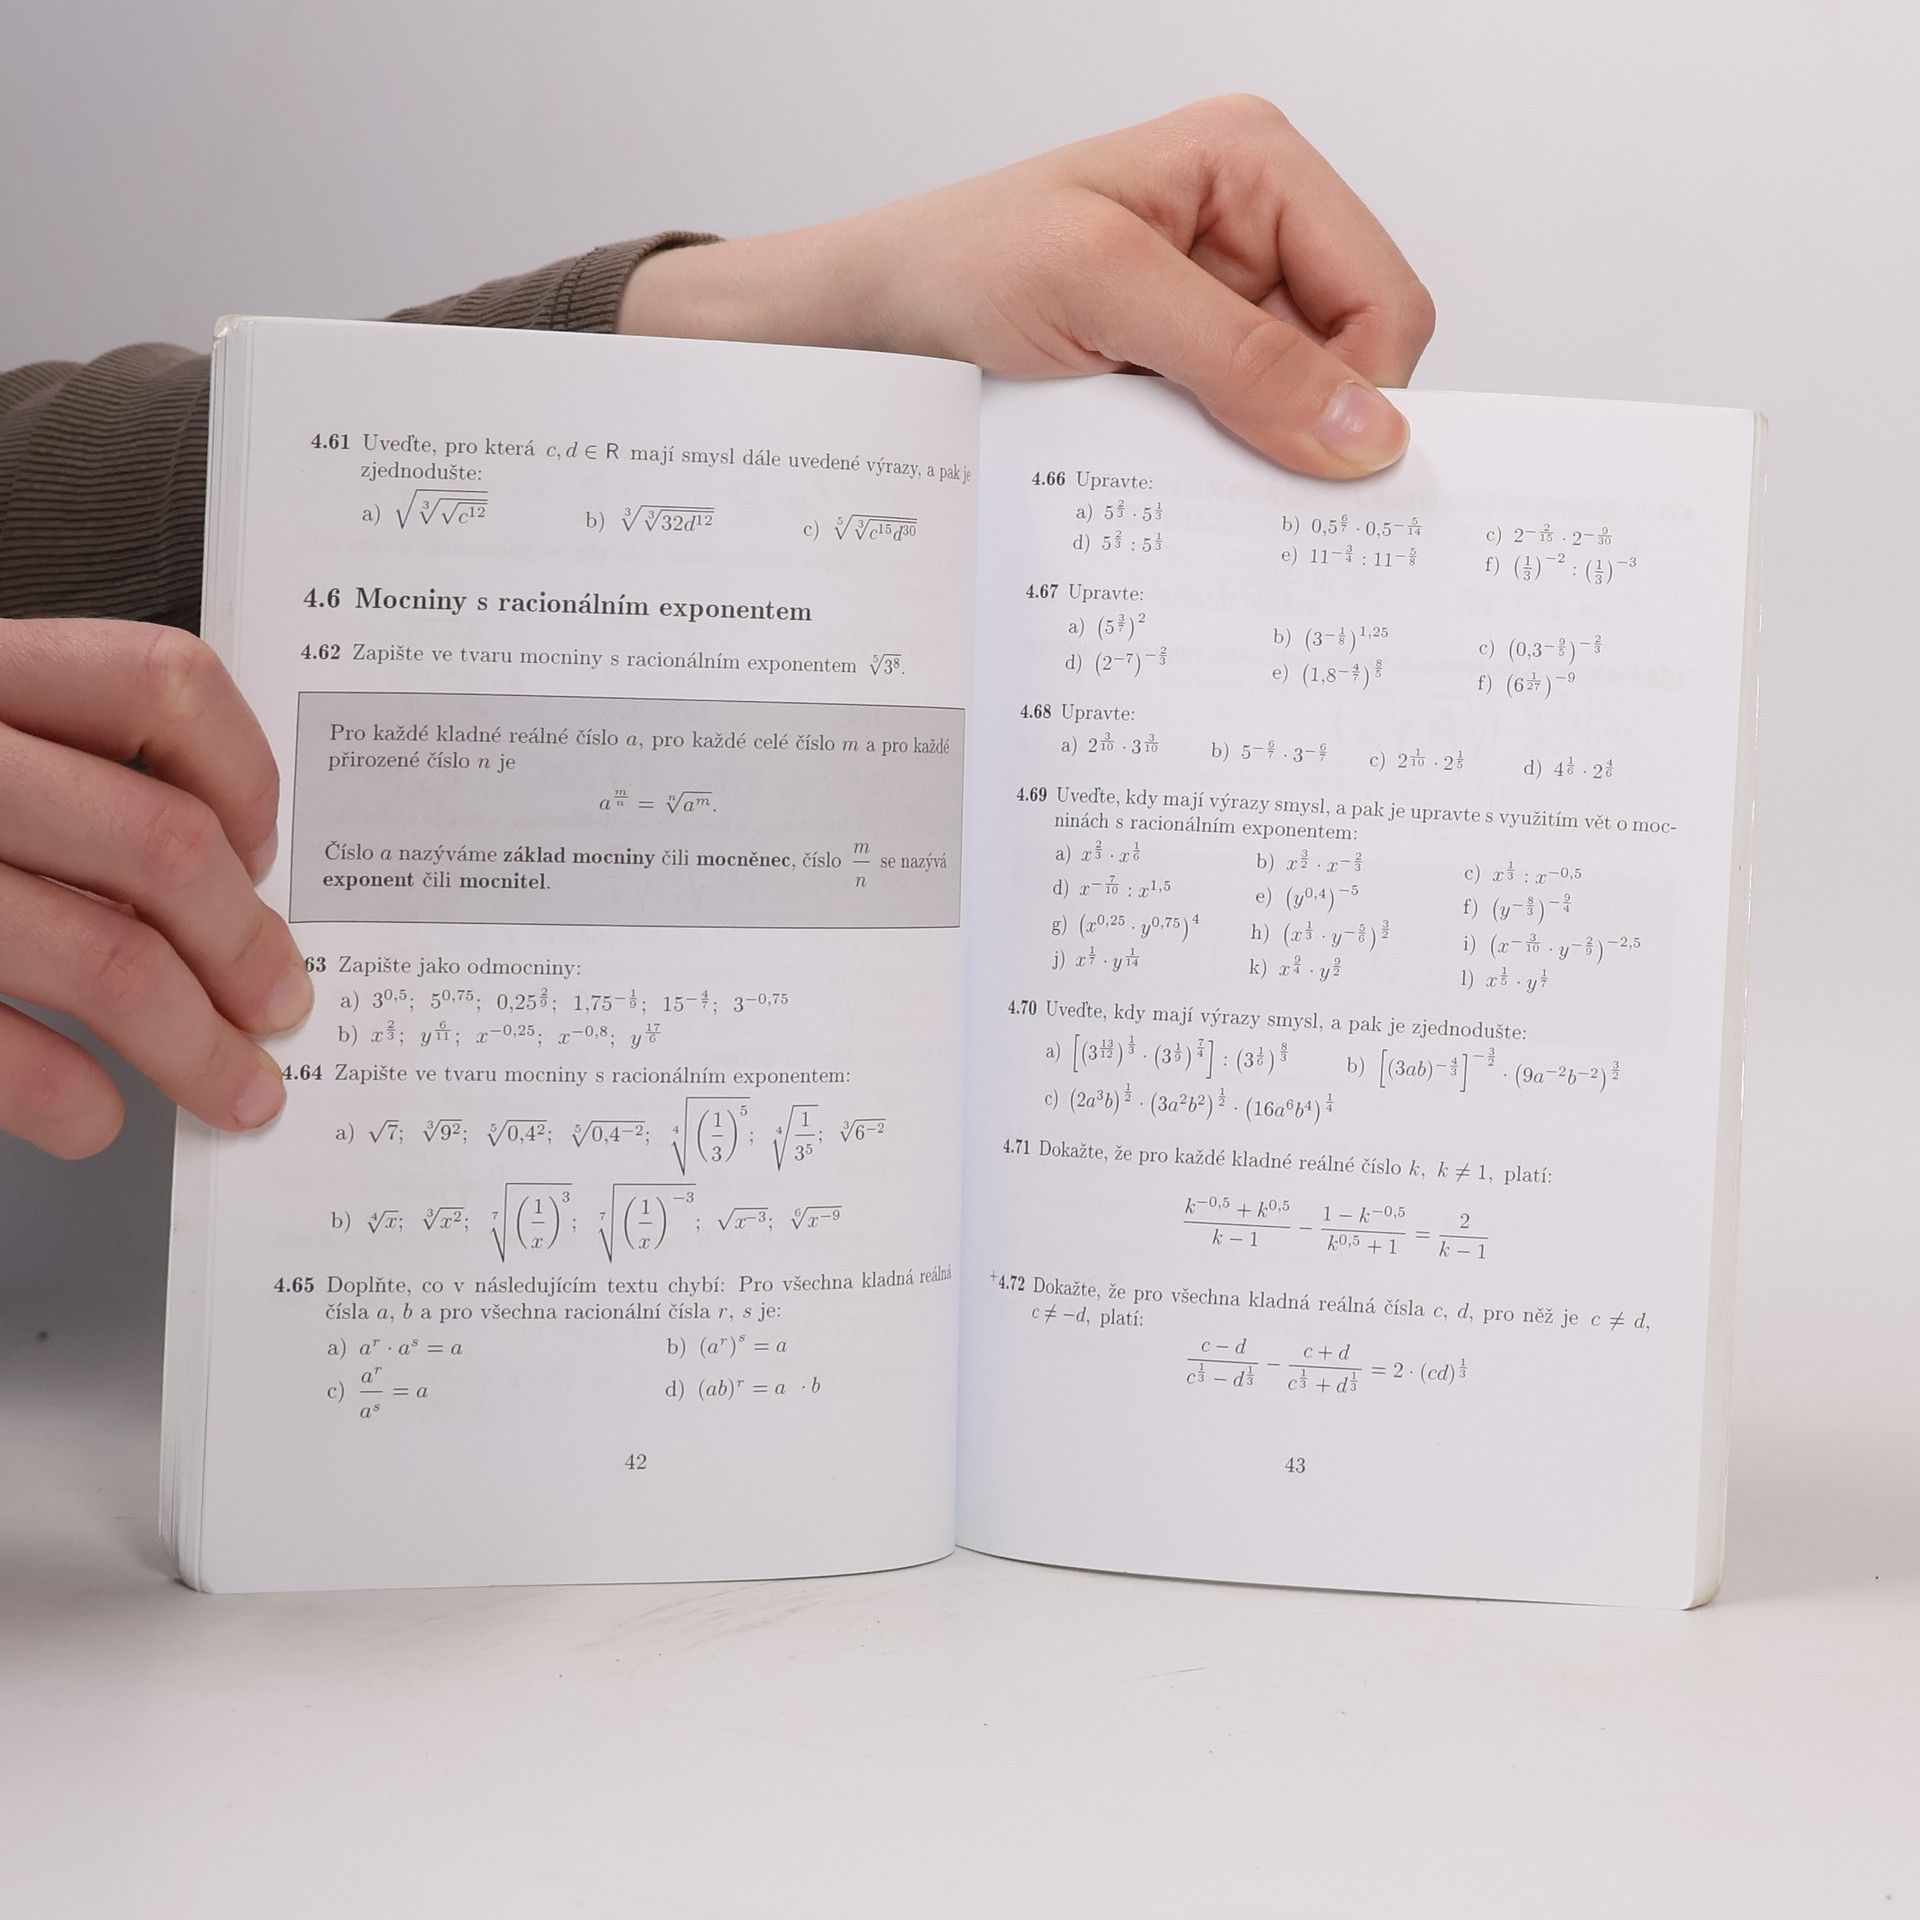 4.61 Uveďte, pro která c, d ∈ R mají smysl dále uvedené výrazy, a pak je
zjednodušte:
a) √(∛(√(c¹²))) b) ∛(∛(32d¹²)) c) ⁵√(∛(c¹⁵d³⁰))
4.6 Mocniny s racionálním exponentem
4.62 Zapište ve tvaru mocniny s racionálním exponentem ⁵√(3⁸).
Pro každé kladné reálné číslo a, pro každé celé číslo m a pro každé
přirozené číslo n je
a^(m/n) = ⁿ√(a^m).
Číslo a nazýváme základ mocniny čili mocněnec, číslo m/n se nazývá
exponent čili mocnitel.
63 Zapište jako odmocniny:
a) 3^(0,5); 5^(0,75); 0,25^(2/9); 1,75^(−1/9); 15^(−4/7); 3^(−0,75)
b) x^(2/3); y^(6/11); x^(−0,25); x^(−0,8); y^(17/6)
4.64 Zapište ve tvaru mocniny s racionálním exponentem:
a) √7; ∛(9²); ⁵√(0,4²); ⁵√(0,4⁻²); ⁴√((1/3)⁵); ⁴√(1/3⁵); ∛(6⁻²)
b) ⁴√x; ∛(x²); ⁷√((1/x)³); ⁷√((1/x)⁻³); √(x⁻³); ⁶√(x⁻⁹)
4.65 Doplňte, co v následujícím textu chybí: Pro všechna kladná reálná
čísla a, b a pro všechna racionální čísla r, s je:
a) a^r · a^s = a b) (a^r)^s = a
c) a^r/a^s = a d) (ab)^r = a · b
42
4.66 Upravte:
a) 5^(2/3) · 5^(1/3) b) 0,5^(6/7) · 0,5^(−5/14) c) 2^(−2/15) · 2^(−9/30)
d) 5^(2/3) : 5^(1/3) e) 11^(−3/4) : 11^(−5/8) f) (1/3)^(−2) : (1/3)^(−3)
4.67 Upravte:
a) (5^(3/7))^2 b) (3^(−1/8))^(1,25) c) (0,3^(−9/5))^(−2/3)
d) (2^(−7))^(−2/3) e) (1,8^(−4/7))^(8/5) f) (6^(1/27))^(−9)
4.68 Upravte:
a) 2^(3/10) · 3^(3/10) b) 5^(−6/7) · 3^(−6/7) c) 2^(1/10) · 2^(1/5) d) 4^(1/6) · 2^(4/6)
4.69 Uveďte, kdy mají výrazy smysl, a pak je upravte s využitím vět o moc-
ninách s racionálním exponentem:
a) x^(2/3) · x^(1/6) b) x^(3/2) · x^(−2/3) c) x^(1/3) : x^(−0,5)
d) x^(−7/10) : x^(1,5) e) (y^(0,4))^(−5) f) (y^(−8/3))^(−9/4)
g) (x^(0,25) · y^(0,75))^4 h) (x^(1/3) · y^(−5/6))^(3/2) i) (x^(−3/10) · y^(−2/9))^(−2,5)
j) x^(1/7) · y^(1/14) k) x^(9/4) · y^(9/2) l) x^(1/5) · y^(1/7)
4.70 Uveďte, kdy mají výrazy smysl, a pak je zjednodušte:
a) [(3^(13/12))^(1/3) · (3^(1/9))^(7/4)] : (3^(1/6))^(8/3) b) [(3ab)^(−4/3)]^(−3/2) · (9a⁻²b⁻²)^(3/2)
c) (2a³b)^(1/2) · (3a²b²)^(1/2) · (16a⁶b⁴)^(1/4)
4.71 Dokažte, že pro každé kladné reálné číslo k, k ≠ 1, platí:
(k^(−0,5) + k^(0,5))/(k − 1) − (1 − k^(−0,5))/(k^(0,5) + 1) = 2/(k − 1)
+4.72 Dokažte, že pro všechna kladná reálná čísla c, d, pro něž je c ≠ d,
c ≠ −d, platí:
(c − d)/(c^(1/3) − d^(1/3)) − (c + d)/(c^(1/3) + d^(1/3)) = 2 · (cd)^(1/3)
43